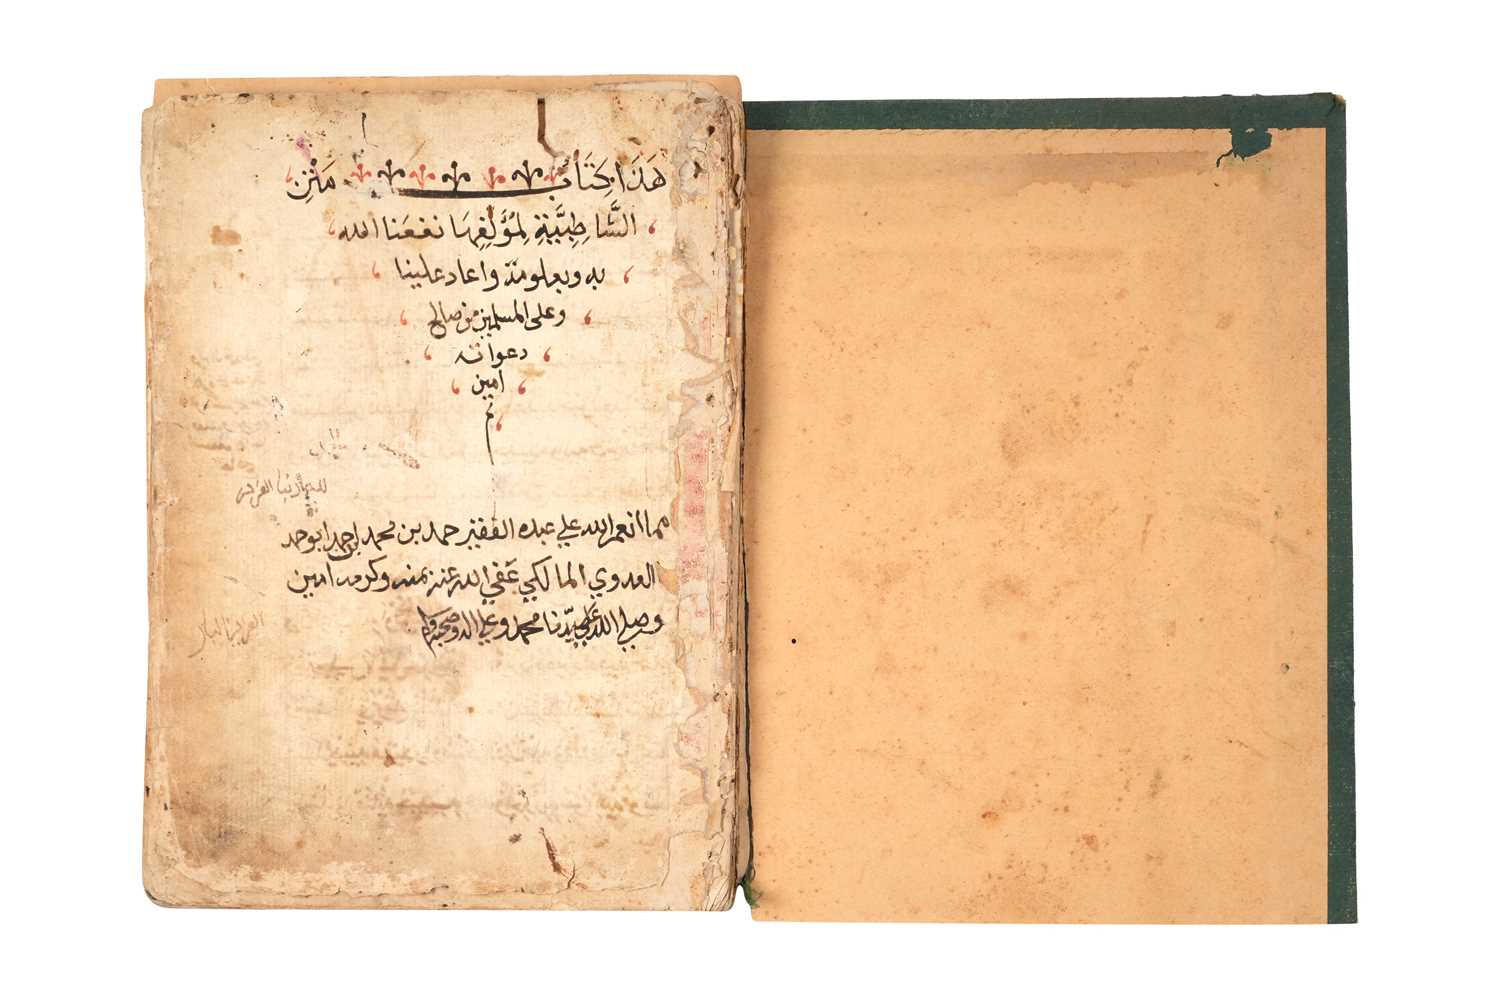 هَذَا كِتَابُ مَتْنِ
الشَّاطِبِيَّةِ لِمُؤَلِّفِهَا نفعَنا الله
به وبعلومه واعاد علينا
وعلى المسلمين من صالح
دعواته
امين
تم
مما انعم الله علي عبده الفقير حمد بن محمد بن احمد ابو حمد
العدوي المالكي عَفي الله عنه بمنه وكرمه امين
وصلي الله علي سيّدنا محمد وعلي اله وصحبه وسلم